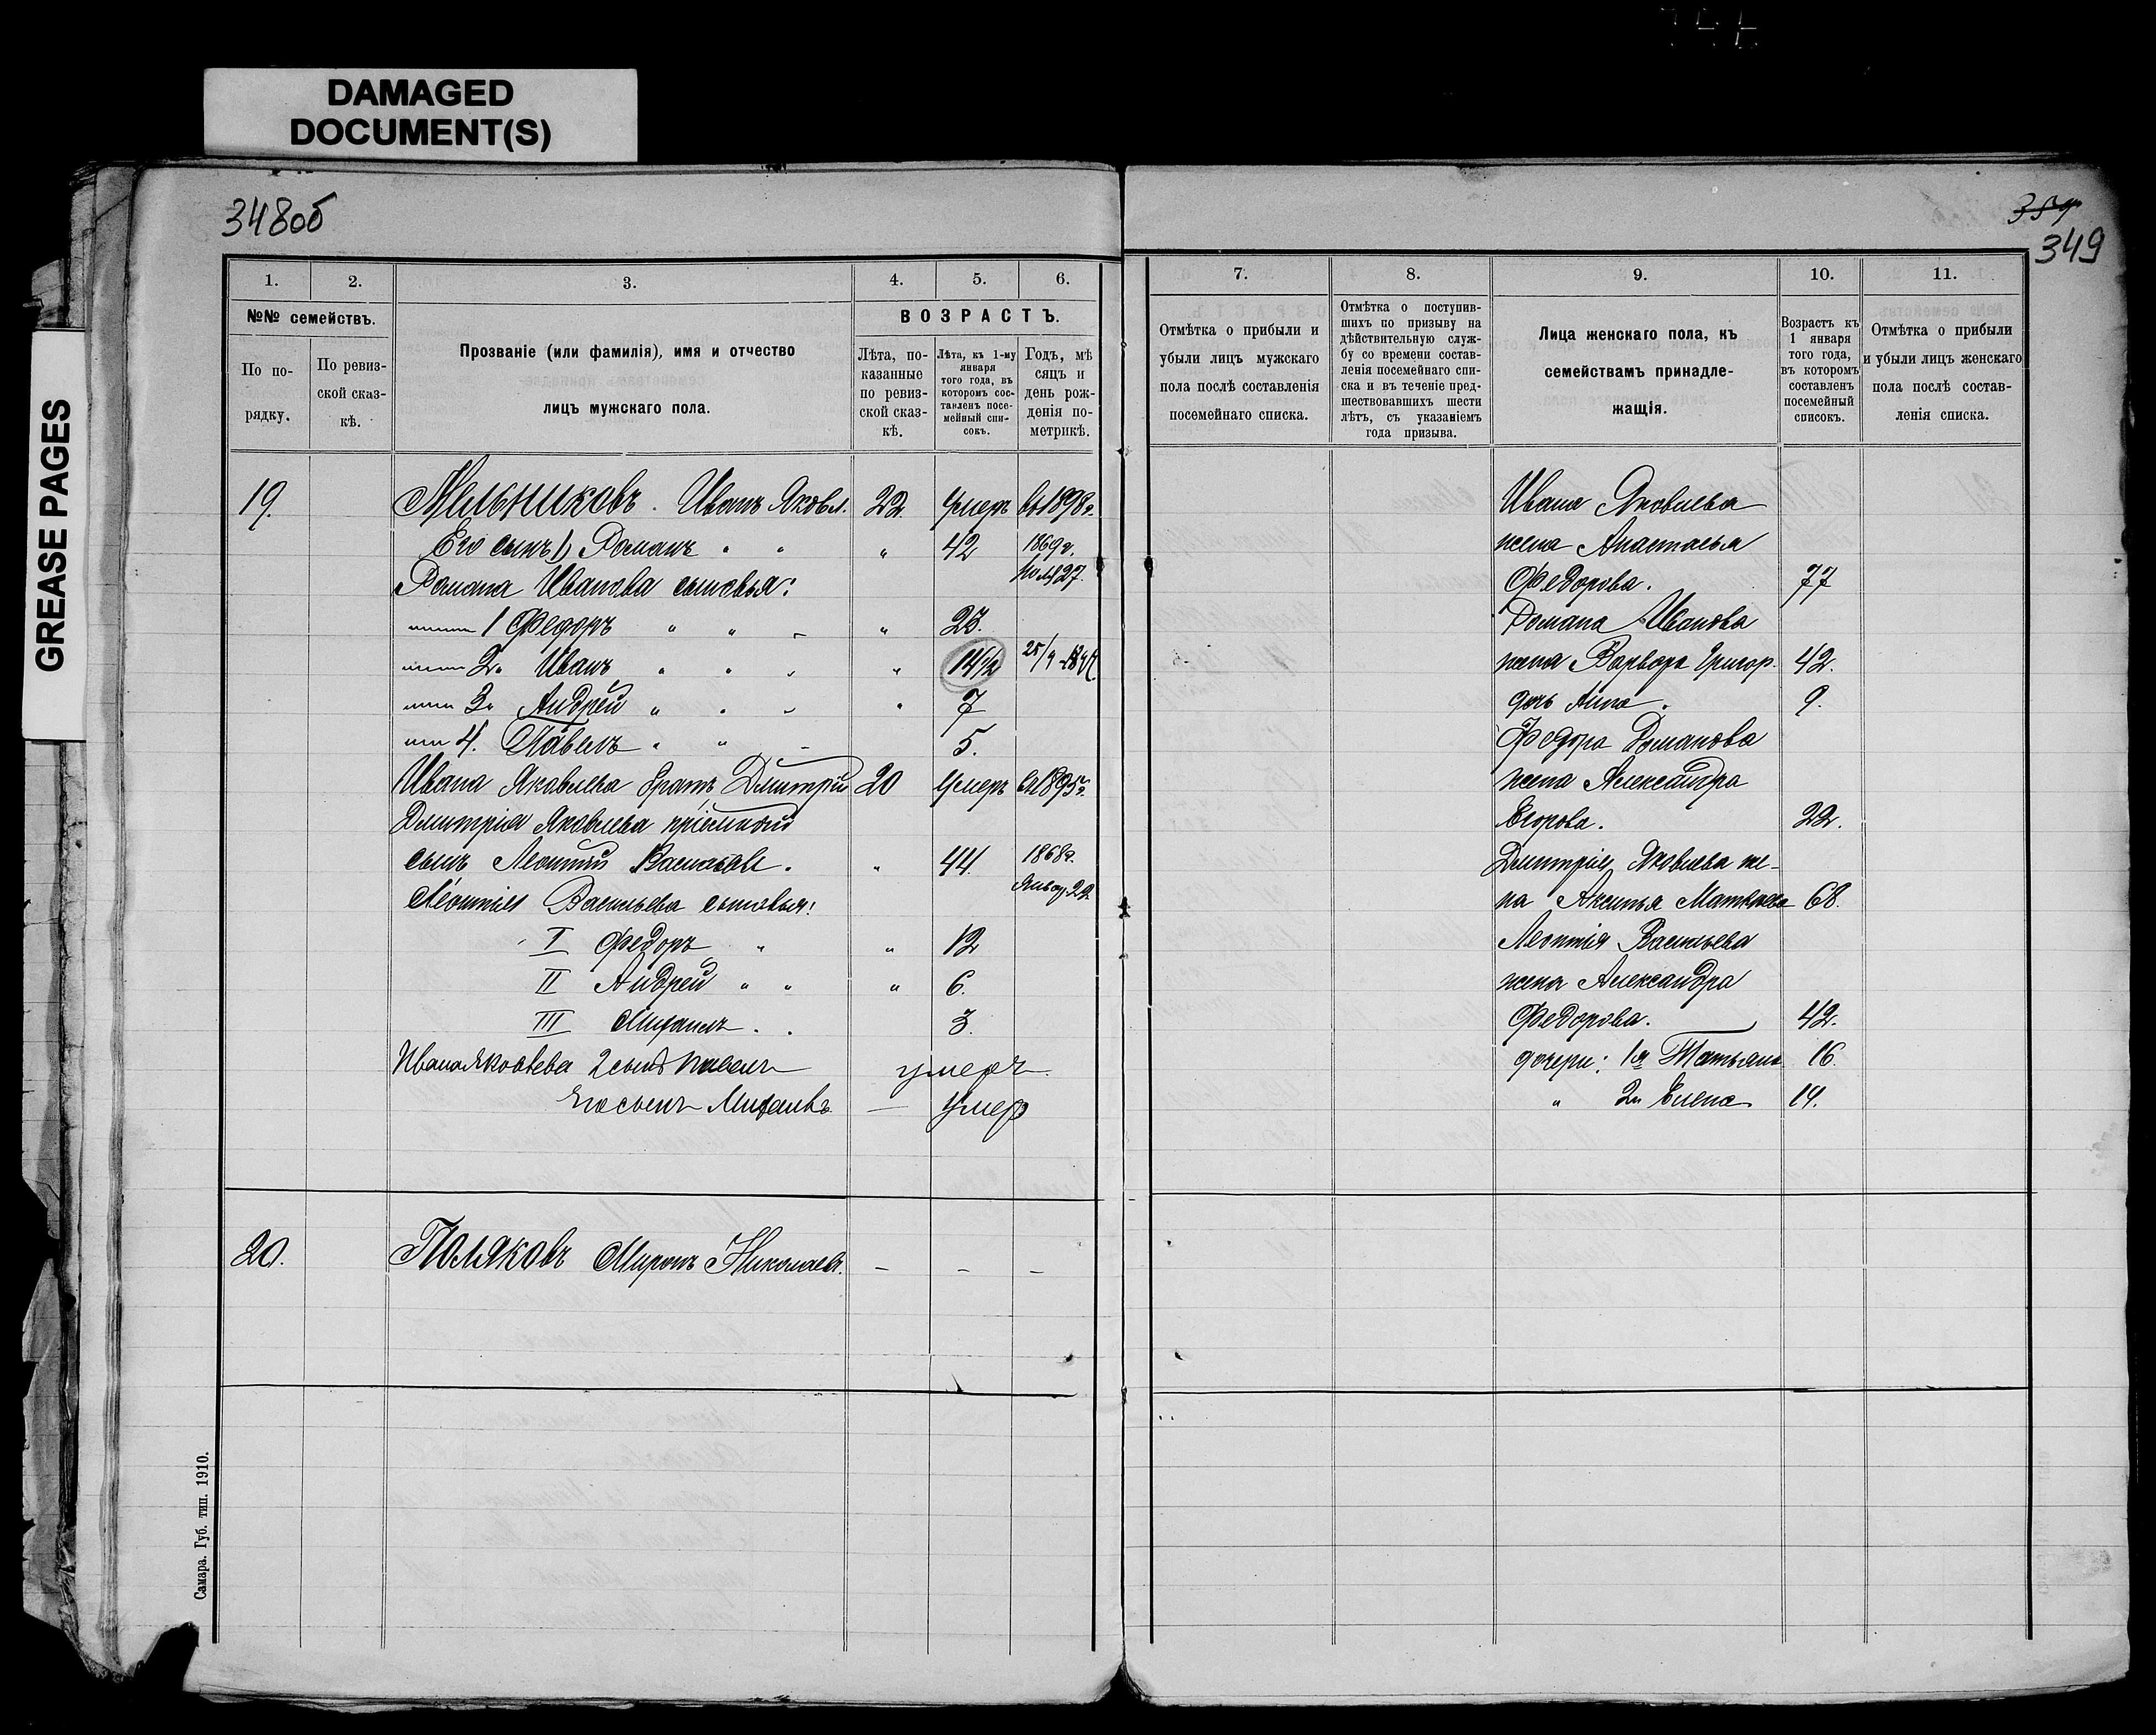 DAMAGED
DOCUMENT(S)
GREASE PAGES
348об
1. 2. 3. 4. 5. 6.
№№ семействъ.
По порядку.
По ревизской сказкѣ.
Прозваніе (или фамилія), имя и отчество
лицъ мужскаго пола.
ВОЗРАСТЪ.
Лѣта, показанные по ревизской сказкѣ.
Лѣта, къ 1-му января того года, въ которомъ составленъ посемейный списокъ.
Годъ, мѣсяцъ и день рожденія по метрикѣ.
19. Мельниковъ. Иванъ Яковл. 22 Умеръ въ 1898г.
Его сынъ 1) Романъ " " " 42 1869г.
Романа Иванова сыновья: Іюля 27.
1 Федоръ " " " 23.
2. Иванъ " " " 14½ 25/9
3. Андрей " " " 7
4. Павелъ " " 5.
Ивана Яковлева братъ Дмитрій 20 Умеръ въ 1895г.
Дмитрія Яковлева пріемной
сынъ Леонтій Васильев. " 44. 1868г.
Леонтія Васильева сыновья: Январ. 22
I Федоръ " " 12
II Андрей " " " 6.
III Михаилъ . . 3.
Ивана Яковлева 2 сынъ Павелъ умеръ.
Его сынъ Михаилъ — умер
20. Поляковъ Миронъ Николаев. – – –
Самара. Губ. тип. 1910.
359
349
7. 8. 9. 10. 11.
Отмѣтка о прибыли и
убыли лицъ мужскаго
пола послѣ составленія
посемейнаго списка.
Отмѣтка о поступив-
шихъ по призыву на
дѣйствительную служ-
бу со времени состав-
ленія посемейнаго спи-
ска и въ теченіе пред-
шествовавшихъ шести
лѣтъ, съ указаніемъ
года призыва.
Лица женскаго пола, къ
семействамъ принадле-
жащія.
Возрастъ къ
1 января
того года,
въ которомъ
составленъ
посемейный
списокъ.
Отмѣтка о прибыли
и убыли лицъ женскаго
пола послѣ состав-
ленія списка.
Ивана Яковлева
жена Анастасья
Федорова. 77
Романа Иванова
жена Варвара Григор. 42.
дочь Анна. 9.
Федора Романова
жена Александра
Егорова. 22.
Дмитрія Яковлева же-
на Аксинья Матвѣева 68.
Леонтія Васильева
жена Александра
Федорова. 42.
дочери: 1я Татьяна 16.
" 2я Елена 14.